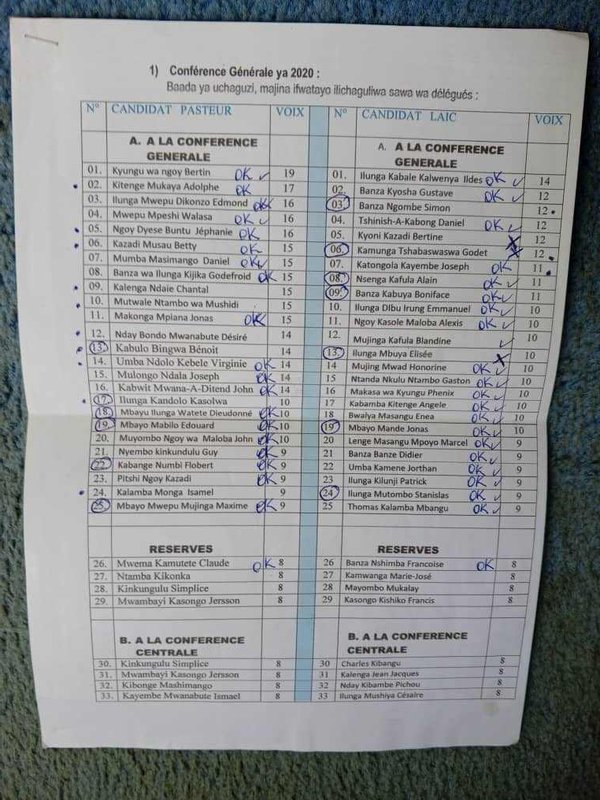 1) Conférence Générale ya 2020 :
Baada ya uchaguzi, majina ifwatayo ilichaguliwa sawa wa délégués :
N° CANDIDAT PASTEUR VOIX N° CANDIDAT LAIC VOIX
A. A LA CONFERENCE GENERALE A. A LA CONFERENCE GENERALE
01. Kyungu wa ngoy Bertin OK 19 01. Ilunga Kabale Kalwenya Ildes OK 14
02. Kitenge Mukaya Adolphe OK 17 02. Banza Kyosha Gustave OK 12
03. Ilunga Mwepu Dikonzo Edmond OK 16 03. Banza Ngombe Simon 12
04. Mwepu Mpeshi Walasa OK 16 04. Tshinish-A-Kabong Daniel OK 12
05. Ngoy Dyese Buntu Jéphanie OK 16 05. Kyoni Kazadi Bertine X 12
06. Kazadi Musau Betty OK 15 06. Kamunga Tshabaswaswa Godet X 12
07. Mumba Masimango Daniel OK 15 07. Katongola Kayembe Joseph OK 11
08. Banza wa Ilunga Kijika Godefroid OK 15 08. Nsenga Kafula Alain OK 11
09. Kalenga Ndaie Chantal 15 09. Banza Kabuya Boniface OK 11
10. Mutwale Ntambo wa Mushidi 15 10. Ilunga DIbu Irung Emmanuel OK 10
11. Makonga Mpiana Jonas OK 15 11. Ngoy Kasole Maloba Alexis OK 10
12. Nday Bondo Mwanabute Désiré 14 12. Mujinga Kafula Blandine 10
13. Kabulo Bingwa Bénoit 14 13. Ilunga Mbuya Elisée X 10
14. Umba Ndolo Kebele Virginie OK 14 14 Mujing Mwad Honorine OK 10
15. Mulongo Ndala Joseph OK 14 15 Ntanda Nkulu Ntambo Gaston OK 10
16. Kabwit Mwana-A-Ditend John OK 14 16 Makasa wa Kyungu Phenix OK 10
17. Ilunga Kandolo Kasolwa 10 17 Kabamba Kitenge Angele OK 10
18. Mbayu Ilunga Watete Dieudonné OK 10 18 Bwalya Masangu Enea OK 10
19. Mbayo Mabilo Edouard OK 10 19 Mbayo Mande Jonas OK 10
20. Muyombo Ngoy wa Maloba John OK 10 20 Lenge Masangu Mpoyo Marcel OK 9
21. Nyembo kinkundulu Guy OK 9 21 Banza Banze Didier OK 9
22. Kabange Numbi Flobert OK 9 22 Umba Kamene Jorthan OK 9
23. Pitshi Ngoy Kazadi OK 9 23 Ilunga Kilunji Patrick OK 9
24. Kalamba Monga Isamel 9 24 Ilunga Mutombo Stanislas OK 9
25. Mbayo Mwepu Mujinga Maxime OK 9 25 Thomas Kalamba Mbangu OK 9
RESERVES RESERVES
26. Mwema Kamutete Claude OK 8 26 Banza Nshimba Francoise OK 8
27. Ntamba Kikonka 8 27 Kamwanga Marie-José 8
28. Kinkungulu Simplice 8 28 Mayombo Mukalay 8
29. Mwambayi Kasongo Jersson 8 29 Kasongo Kishiko Francis 8
B. A LA CONFERENCE CENTRALE B. A LA CONFERENCE CENTRALE
30. Kinkungulu Simplice 8 30 Charles Kibangu 8
31. Mwambayi Kasongo Jersson 8 31 Kalenga Jean Jacques 8
32. Kibonge Mashimango 8 32 Nday Kibambe Pichou 8
33. Kayembe Mwanabute Ismael 8 33 Ilunga Mushiya Césaire 8